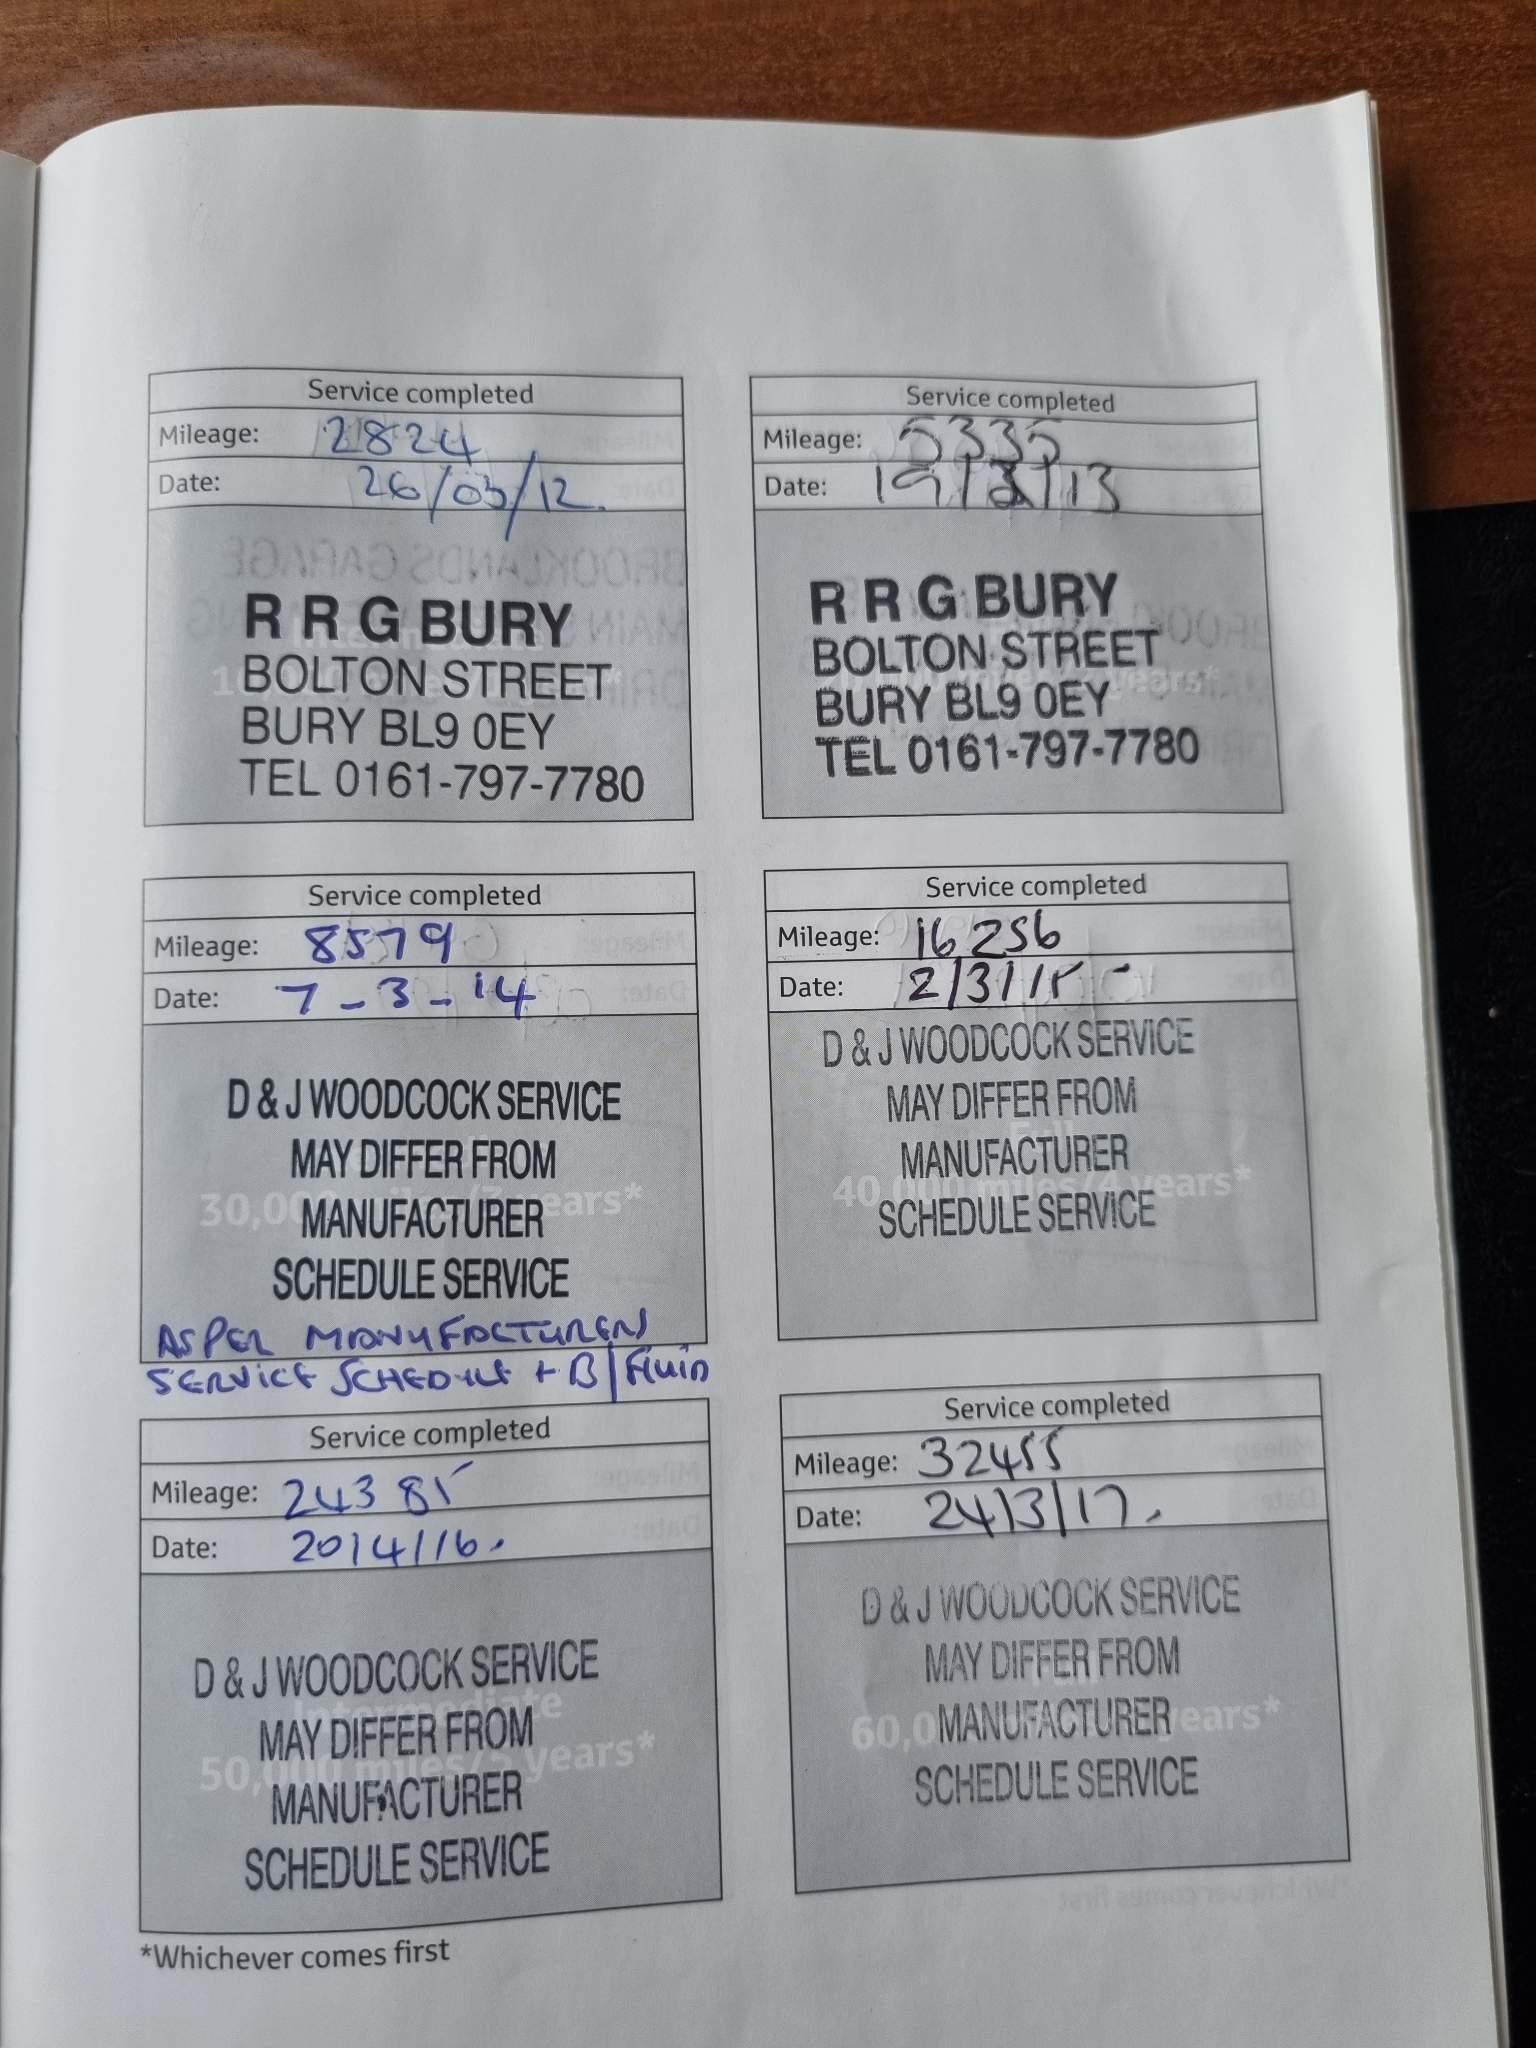 Service completed
Mileage: 2824
Date: 26/03/12.
R R G BURY
BOLTON STREET
BURY BL9 0EY
TEL 0161-797-7780
Service completed
Mileage: 5335
Date: 19/3/13
R R G BURY
BOLTON STREET
BURY BL9 0EY
TEL 0161-797-7780
Service completed
Mileage: 8579
Date: 7-3-14
D & J WOODCOCK SERVICE
MAY DIFFER FROM
30,000 miles/3 years*
MANUFACTURER
SCHEDULE SERVICE
AS PER MANUFACTURERS
SERVICE SCHEDULE + B/Fluid
Service completed
Mileage: 16256
Date: 2/3/15
D & J WOODCOCK SERVICE
MAY DIFFER FROM
Full
MANUFACTURER
40,000 miles/4 years*
SCHEDULE SERVICE
Service completed
Mileage: 24385
Date: 20/4/16.
D & J WOODCOCK SERVICE
Intermediate
MAY DIFFER FROM
50,000 miles/5 years*
MANUFACTURER
SCHEDULE SERVICE
Service completed
Mileage: 32455
Date: 24/3/17.
D & J WOODCOCK SERVICE
MAY DIFFER FROM
Full
MANUFACTURER
years*
SCHEDULE SERVICE
*Whichever comes first